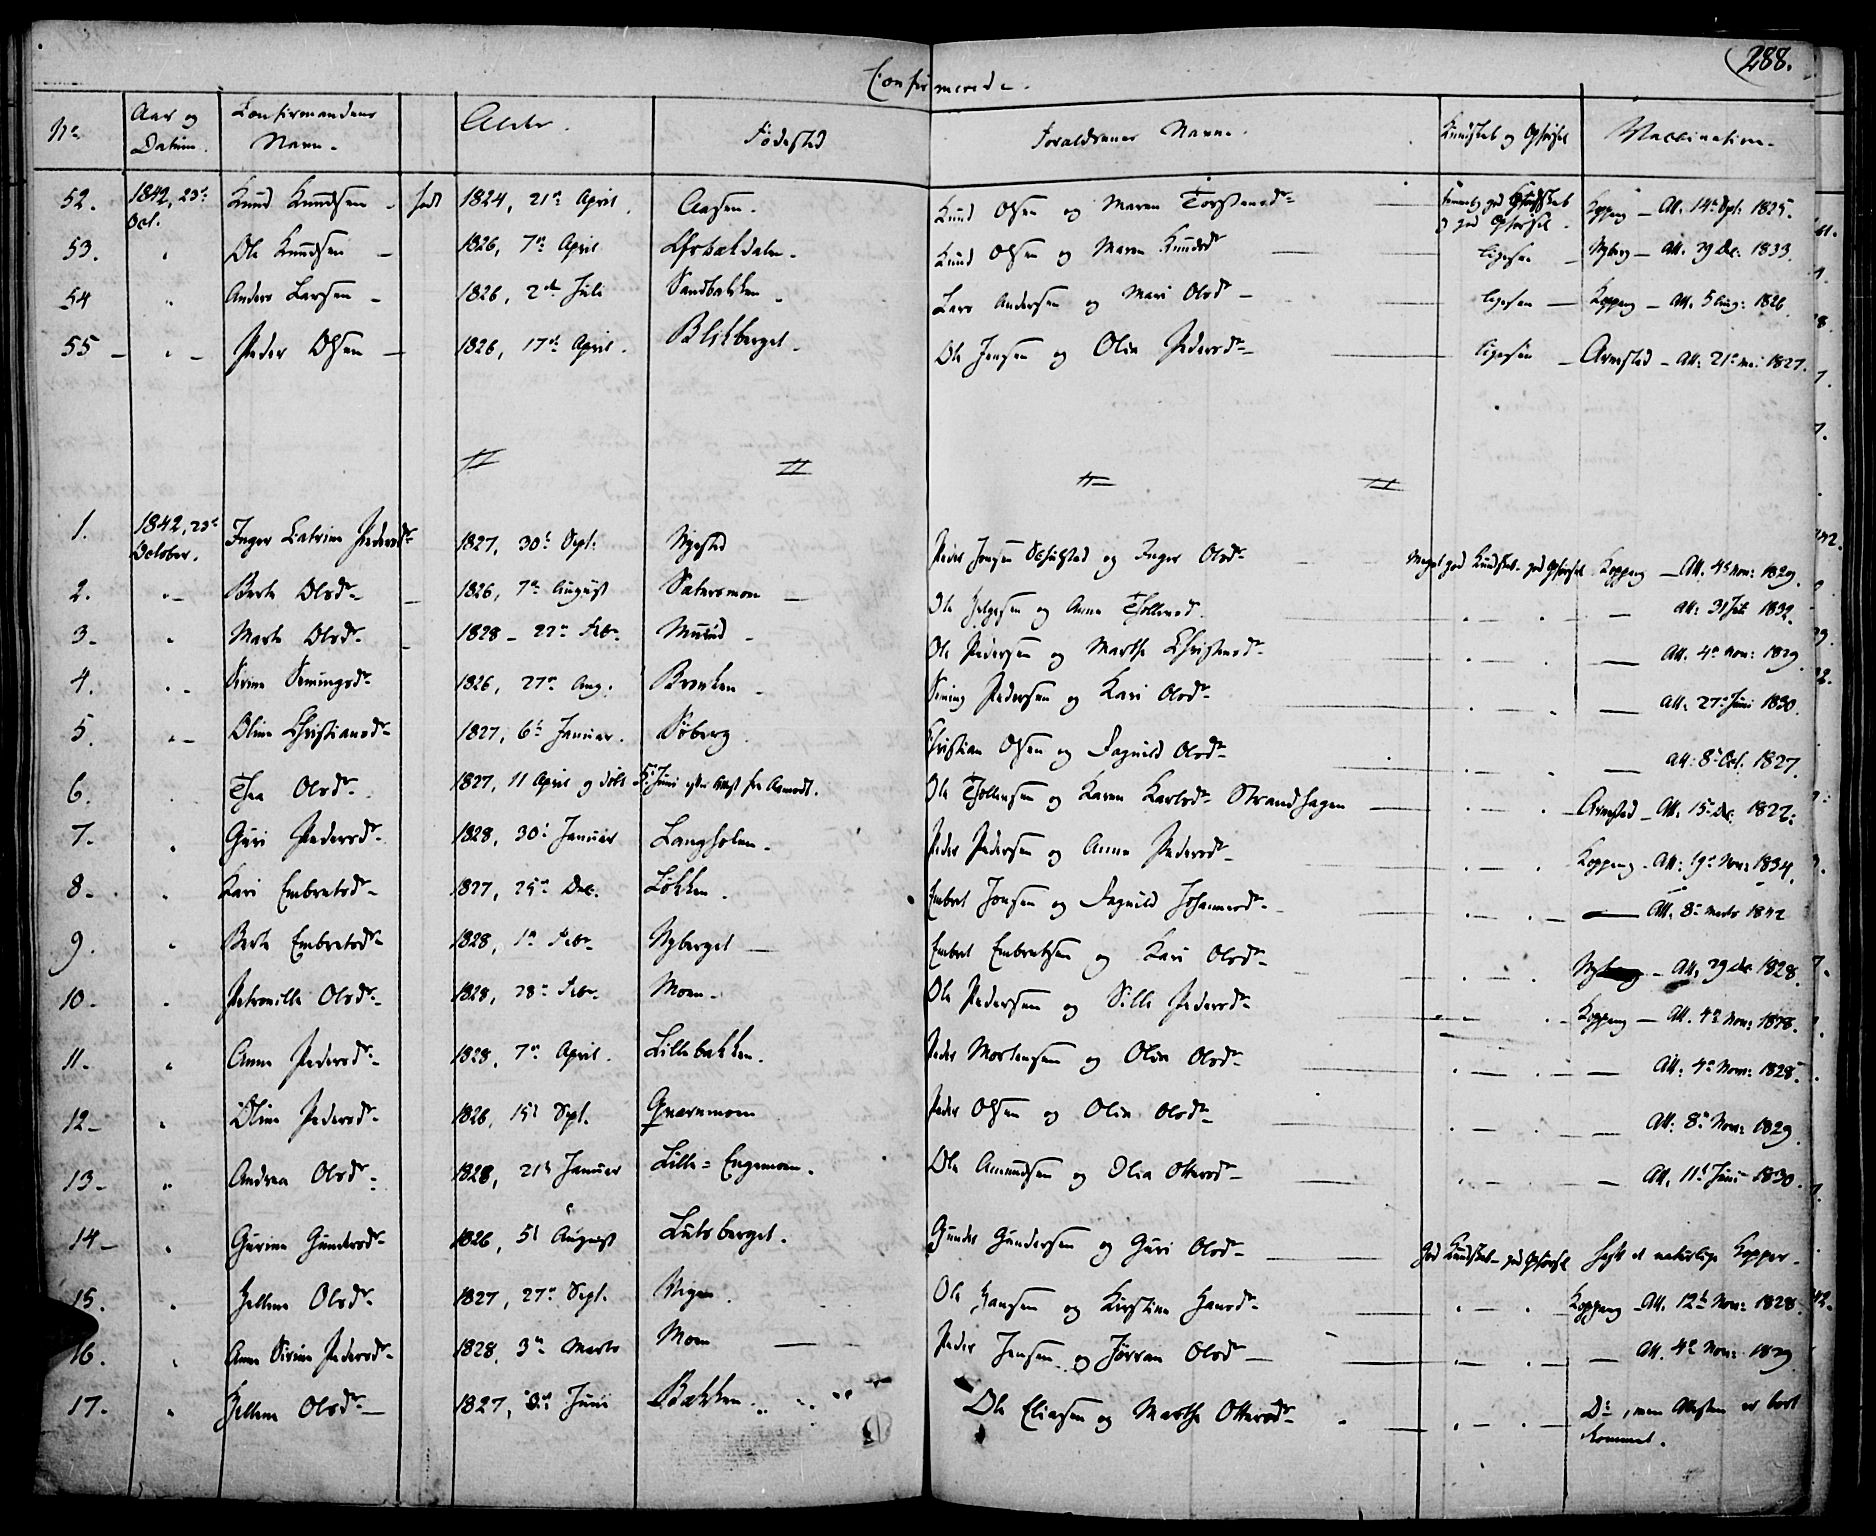 288.
Confirmerede.
No
Aar og Datum.
Confirmandens Navn.
Alder.
Födested
Forældrenes Navne.
Kundskab og Opförsel
Vaccination.
52. 1842, 23de Oct. Knud Knudsen - födt 1824, 21de April. Aasen. Knud Olsen og Maren Torstensdr god Kundskab og god Opförsel. Koppang - Att. 14de Spt: 1825.
53. " Ole Knudsen - 1826, 7de April Knud Olsen og Maren Knudsdr ligesaa - Nyberg - Att. 29 Dec: 1833.
54 " Anders Larsen - 1826, 2den Juli Sandbakken - Lars Andersen og Mari Olsdr - ligesaa - Koppang - Att. 5 Aug: 1826.
55 - " - Peder Olsen - 1826, 17de April. Blikberget - Ole Jensen og Olia Pedersdr - ligesaa - Arnestad - Att: 21de mai 1827.
1. 1842, 23de October. Inger Catrine Pedersdr 1827, 30te Sept: Nysted Peder Jonsen og Inger Olsdr - Meget god Kundskab - god Opförsel Koppang - Att. 4de Nov: 1829.
2. " - Berte Olsdr - 1826, 7de August Satersmoen - Ole Helgesen og Anne Thollensd. " - " - Att: 31 Juli 1832.
3 - " Marte Olsdr - 1828 - 22de Febr. - Ole Pedersen og Marthe Christensdr - " - " - Att. 4de Nov: 1829.
4. " - Sirine Simingsdr - 1826, 27de Aug. Brenken - Siming Pedersen og Kari Olsdr - " - " - Att. 27de Juni 1830.
5. " - Oline Christiansdr - 1827, 6te Januar. Söberg. Christian Olsen og Ragnild Olsdr " - " - Att: 8de Oct. 1827.
6. " Thea Olsdr - 1827, 11 April og döbt Juni efter Attest fra Aamodt. Ole Thollensen og Karen Karlsdr - Strandhagen - " - " Arnestad - Att. 15de Dec. 1827.
7. " Guri Pedersdr - 1828, 30te Januar Langholen - Peder Pedersen og Anne Pedersdr - " - " Koppang - Att: 19de Nov: 1834.
8 - " Kari Embretsdr - 1827, 25de Dec. Lökken. Embret Jonsen og Ragnild Johannesdr - " - " - Att. 8de Marts 1842
9. " Berte Embretsdr - 1828, 1te Febr - Nyberget - Embret Embretsen og Kari Olsdr - " - " Nyberg - Att. 29 dec 1828.
10 - " Petronille Olsdr - 1828, 28de Febr. Moen - Ole Pedersen og Sille Pedersdr - " - " Koppang - Att. 4de Nov: 1828.
11 - " Anne Pedersdr - 1828, 7de April. Lillebakken. Peder Mortensen og Olia Olsdr - " - " - Att: 4de Nov: 1828.
12 - " Oline Pedersdr - 1826, 15de Sept. Qvernmoen Peder Olsen og Olia Olsdr - " - " - Att: 8de Nov: 1829.
13 - " Andrea Olsdr - 1828, 21de Januar Lille = Engemoen. Ole Amundsen og Olia Ottersdr - " - " - Att. 11te Juni 1830.
14 - " Gurine Gundersdr - 1826, 5te August Lutsberget. Gunder Gundersen og Guri Olsdr - god Kundskab - god Opförsel havt de naturlige Kopper -
15. " Hellene Olsdr - 1827, 27de Sept. Vigen. Ole Hansen og Kirstine Hansdr - " - " Koppang - Att. 12te Nov: 1828.
16. " Anne Sirine Pedersdr - 1828, 3de Marts Moen - Peder Jensen og Jörran Olsdr - " - " - Att. 4de Nov: 1829
17. " Hellene Olsdr - 1827, Juni Bakken Ole Eliasen og Marthe Ottersdr - " - " - Do, men Attesten er bort kommet.